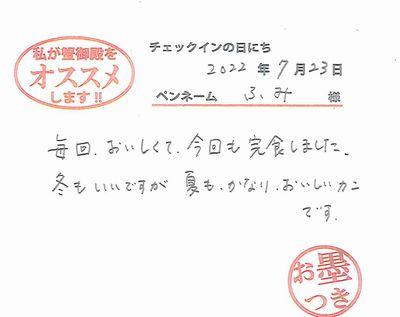 私が蟹御殿を
オススメ
します!!
チェックインの日にち
2022 年 7 月 23 日
ペンネーム ふみ 様
毎回、おいしくて、今回も完食しました。
冬もいいですが 夏も、かなり、おいしいカニ
です。
お墨
つき